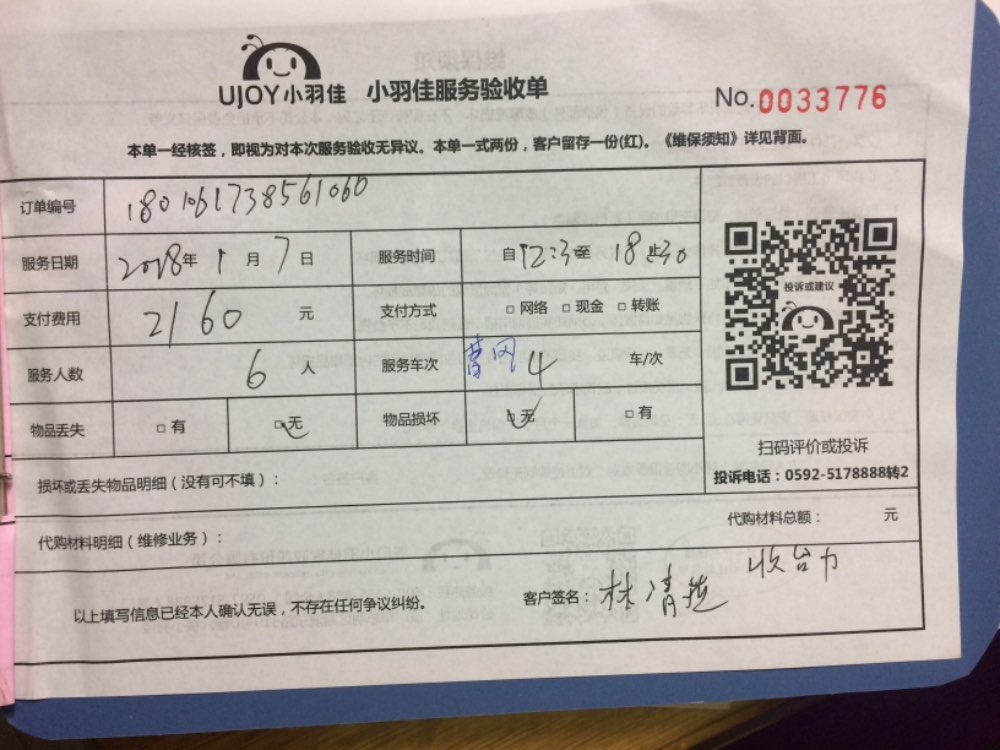 UJOY小羽佳 小羽佳服务验收单
No.0033776
本单一经核签，即视为对本次服务验收无异议。本单一式两份，客户留存一份(红)。《维保须知》详见背面。
订单编号 1801061738561060
服务日期 2018年1月7日 服务时间 自12:30至18止30
支付费用 2160元 支付方式 □网络 □现金 □转账
服务人数 6人 服务车次 4 车/次
物品丢失 □有 □无 物品损坏 □无 □有
投诉或建议
扫码评价或投诉
投诉电话：0592-5178888转2
损坏或丢失物品明细（没有可不填）：
代购材料明细（维修业务）： 代购材料总额： 元
以上填写信息已经本人确认无误，不存在任何争议纠纷。 客户签名：林清